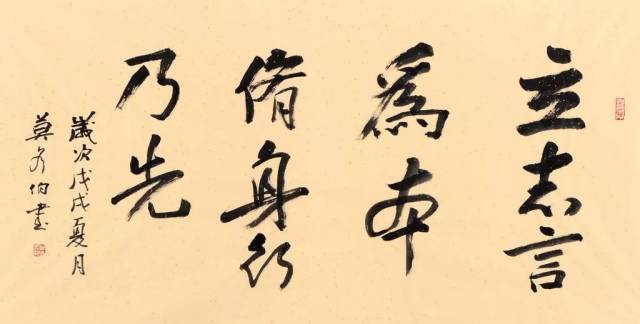 立志言
為本
脩身行
乃先
歲次戊戌夏月
莫各伯書